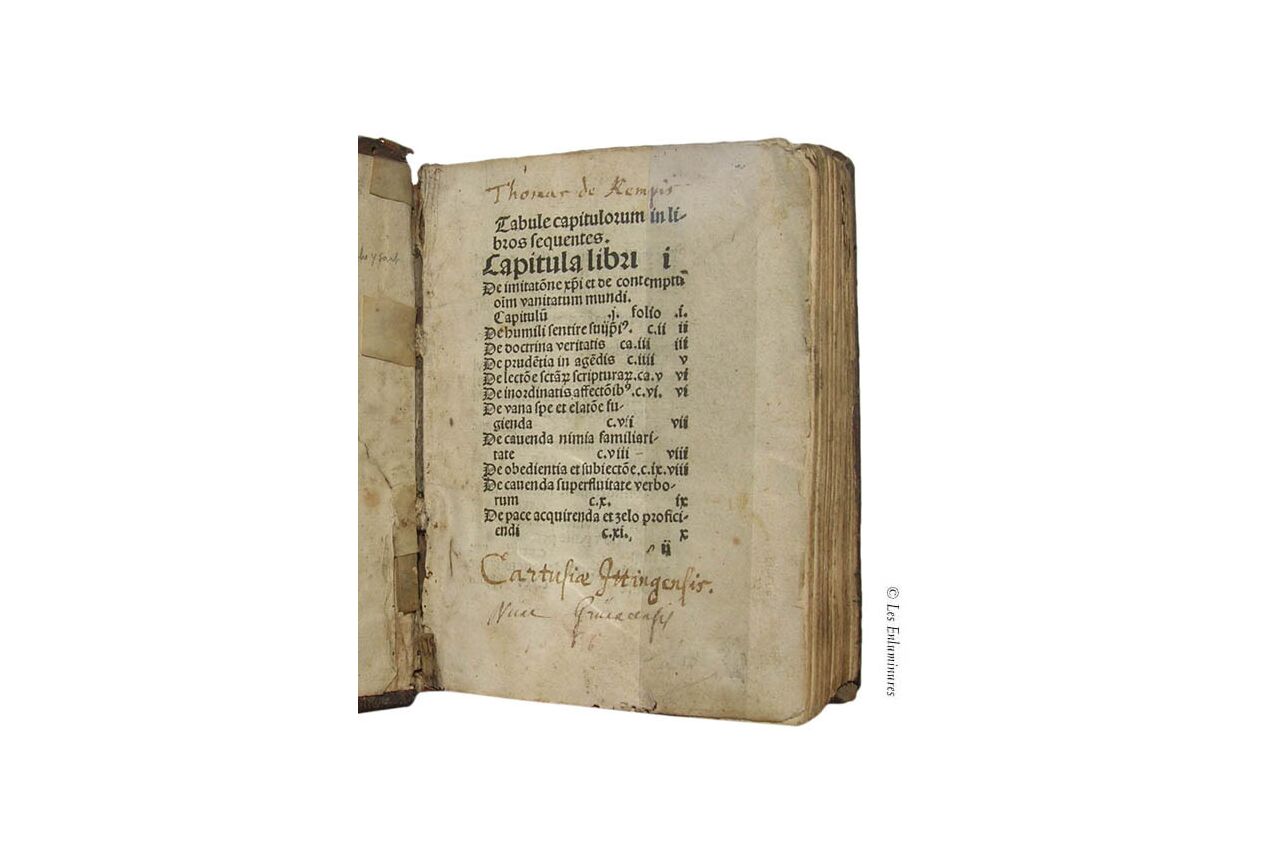 Thomas de Kempis
Tabule capitulorum in li-
bros sequentes.
Capitula libri i
De imitatōne xp̄i et de contemptu
oīm vanitatum mundi.
Capitulū .j. folio .i.
De humili sentire suijp̄iꝰ. c.ii ii
De doctrina veritatis ca.iii iii
De prudētia in agēdis c.iiii v
De lectōe sctāꝝ scripturaꝝ.ca.v vi
De inordinatis affectōibꝰ.c.vi. vi
De vana spe et elatōe fu-
gienda c.vii vii
De cauenda nimia familiari-
tate c.viii viii
De obedientia et subiectōe.c.ix.viii
De cauenda superfluitate verbo-
rum c.x. ix
De pace acquirenda et zelo profici-
endi c.xi. x
ii
Cartusiæ Ittingensis.
Nunc
© Les Enluminures